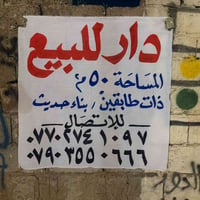 دار للبيع
المساحة ٥٠م
ذات طابقين / بناء حديث
للاتصال
٠٧٧٠٢٧٤١٠٩٧
٠٧٩٠٣٥٥٠٦٦٦